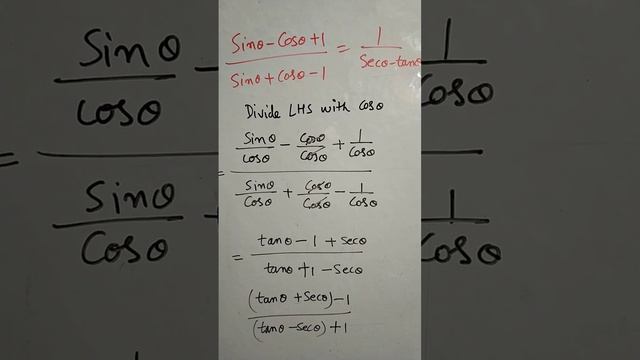 (sinθ - cosθ + 1)/(sinθ + cosθ - 1) = 1/(secθ - tanθ
Divide LHS with cosθ
= (sinθ/cosθ - cosθ/cosθ + 1/cosθ)/(sinθ/cosθ + cosθ/cosθ - 1/cosθ)
= (tanθ - 1 + secθ)/(tanθ + 1 - secθ)
((tanθ + secθ) - 1)/((tanθ - secθ) + 1)